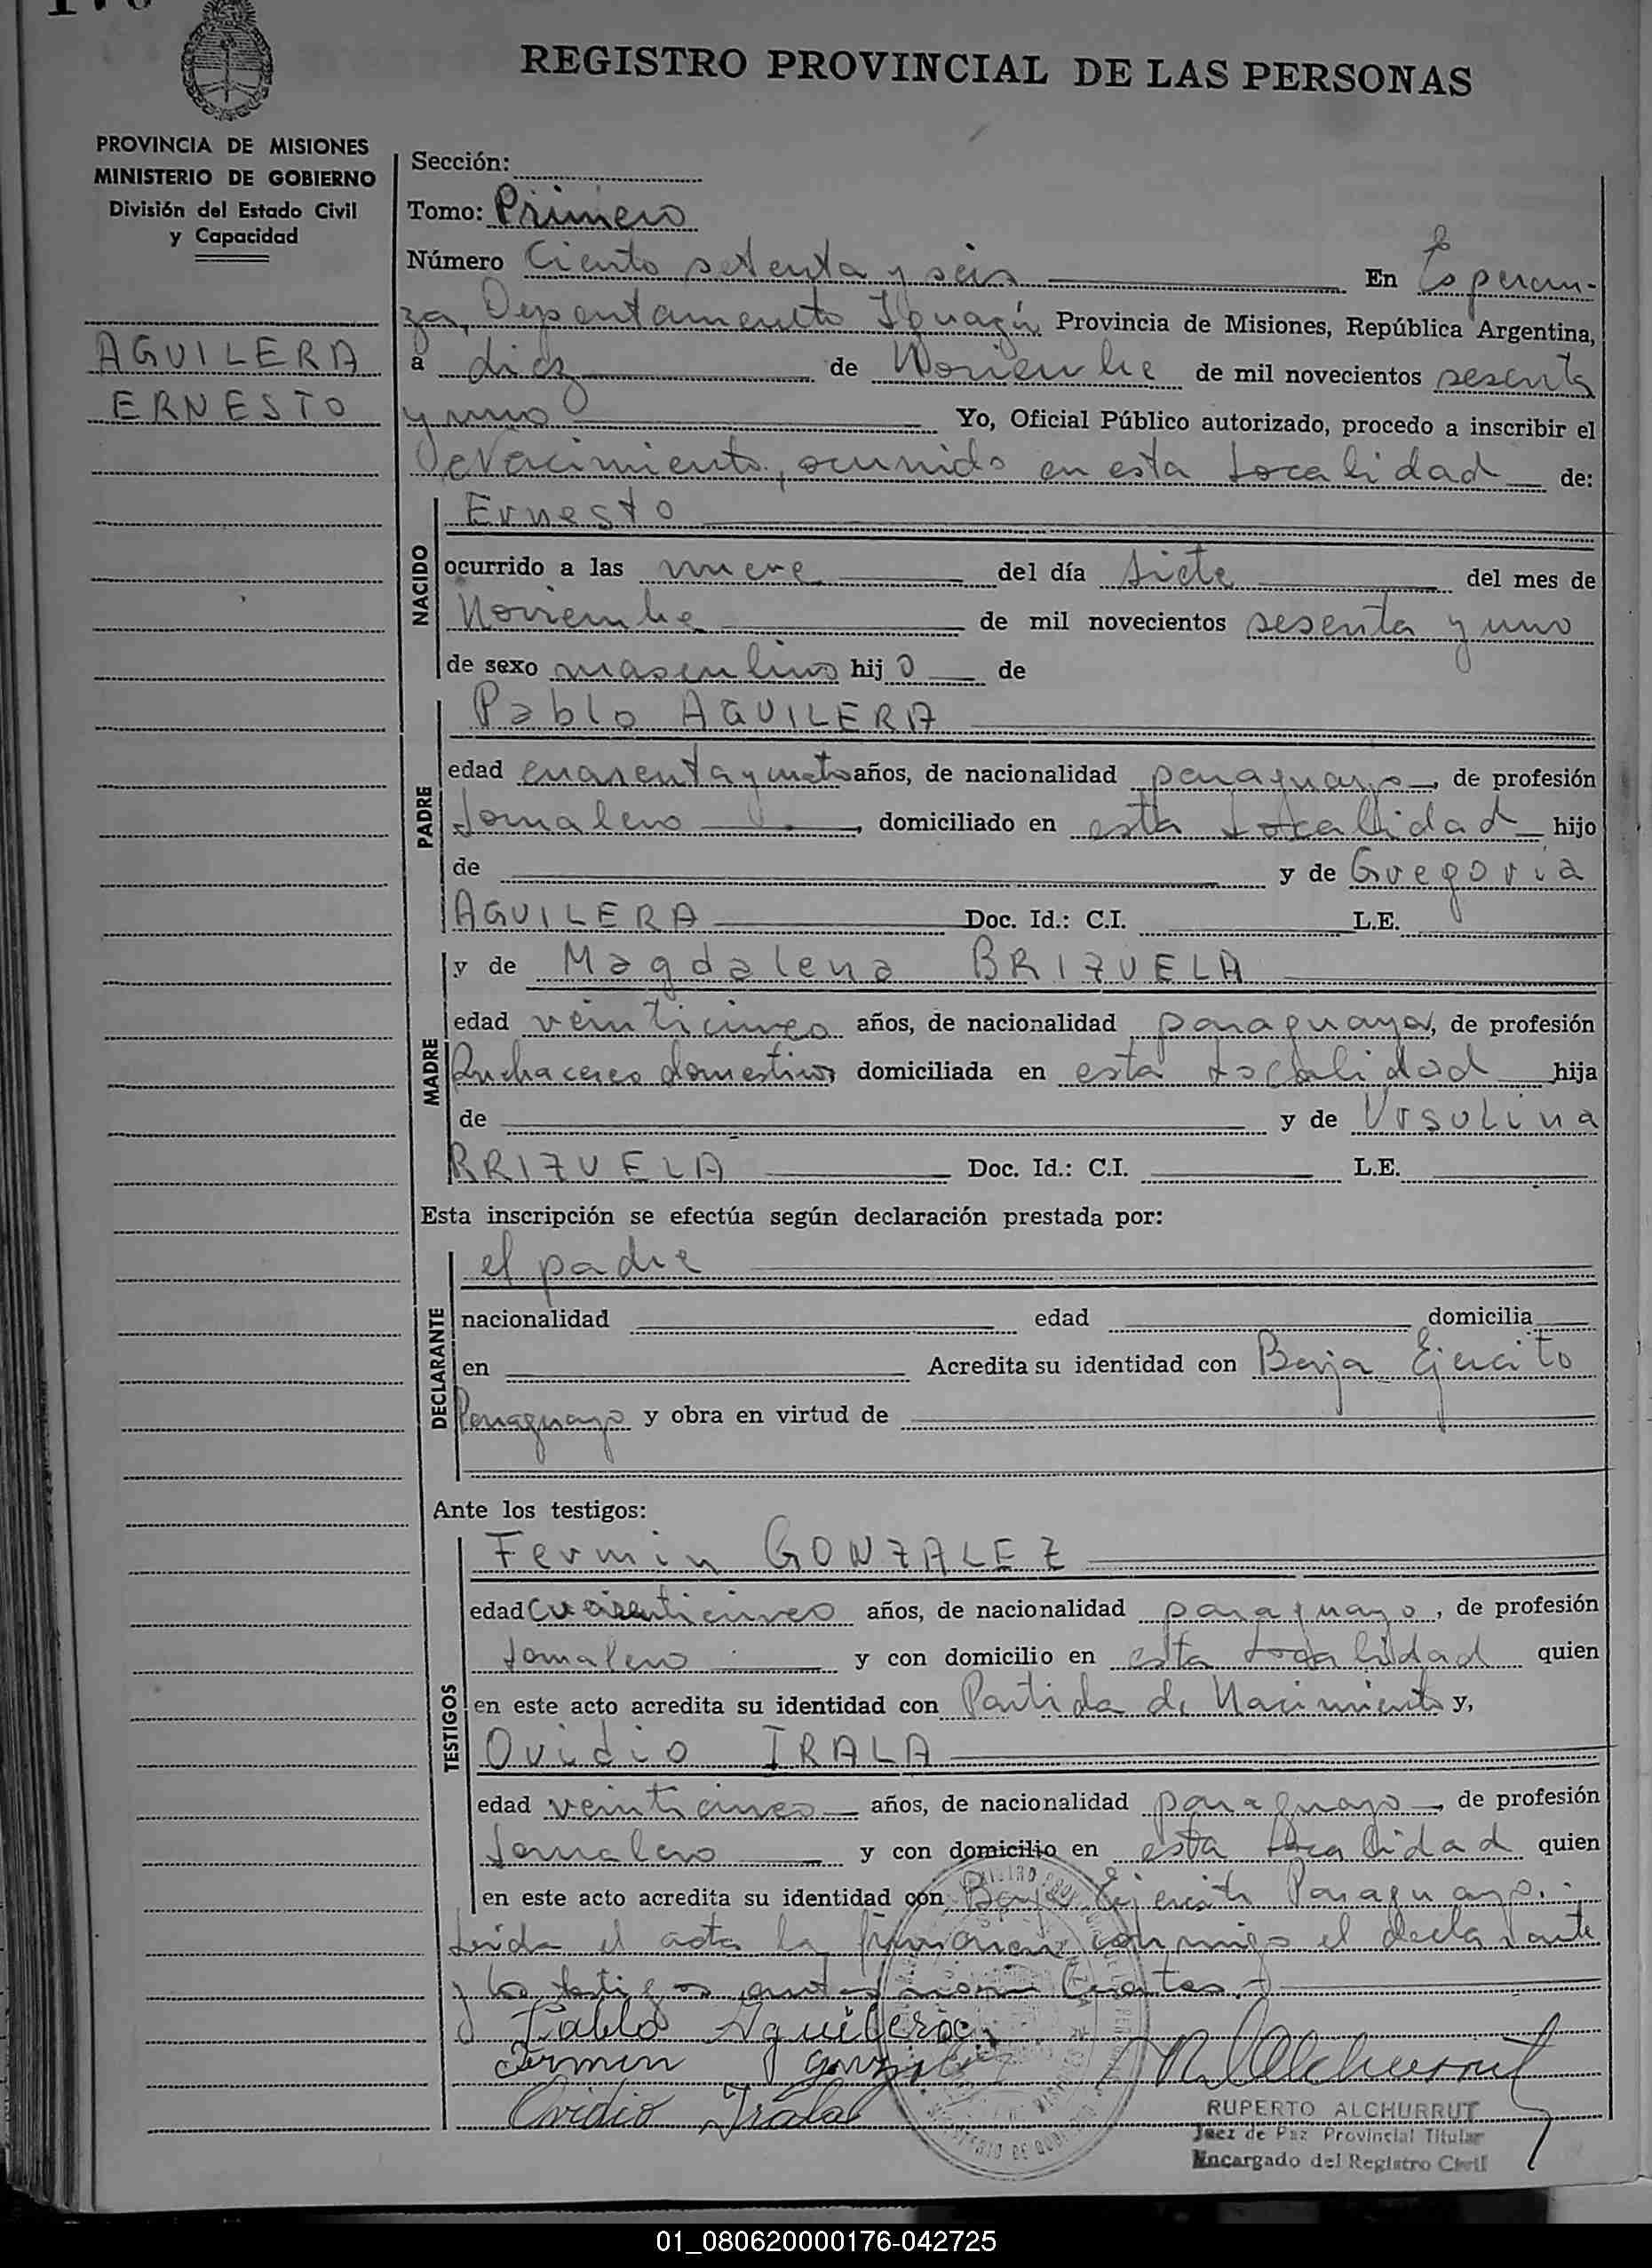 REGISTRO PROVINCIAL DE LAS PERSONAS
PROVINCIA DE MISIONES
MINISTERIO DE GOBIERNO
División del Estado Civil
y Capacidad
AGUILERA
ERNESTO
Sección:
Tomo: Primero
Número Ciento setenta y seis En Esperan-
za, Departamento Iguazú Provincia de Misiones, República Argentina,
a diez de Noviembre de mil novecientos sesenta
y uno Yo, Oficial Público autorizado, procedo a inscribir el
Nacimiento, ocurrido en esta Localidad de:
NACIDO
Ernesto
ocurrido a las nueve del día siete del mes de
Noviembre de mil novecientos sesenta y uno
de sexo masculino hij o de
PADRE
Pablo AGUILERA
edad cuarenta y cuatro años, de nacionalidad paraguayo, de profesión
Jornalero, domiciliado en esta Localidad hijo
de y de Gregoria
AGUILERA Doc. Id.: C.I. L.E.
MADRE
y de Magdalena BRIZUELA
edad veinticinco años, de nacionalidad paraguaya, de profesión
Quehaceres domesticos domiciliada en esta Localidad hija
de y de Ursulina
BRIZUELA Doc. Id.: C.I. L.E.
Esta inscripción se efectúa según declaración prestada por:
DECLARANTE
el padre
nacionalidad edad domicilia
en Acredita su identidad con Baja Ejercito
Paraguayo y obra en virtud de
Ante los testigos:
TESTIGOS
Fermin GONZALEZ
edad cuarenticinco años, de nacionalidad paraguayo, de profesión
Jornalero y con domicilio en esta Localidad quien
en este acto acredita su identidad con Partida de Nacimiento y,
Ovidio IRALA
edad veinticinco años, de nacionalidad paraguayo, de profesión
Jornalero y con domicilio en esta Localidad quien
en este acto acredita su identidad con Baja Ejercito Paraguayo.
Leida el acta la firman conmigo el declarante
y los testigos
Pablo Aguilera
Fermin Gonzalez
Ovidio Irala
RUPERTO ALCHURRUT
Juez de Paz Provincial Titular
Encargado del Registro Civil
01_080620000176-042725